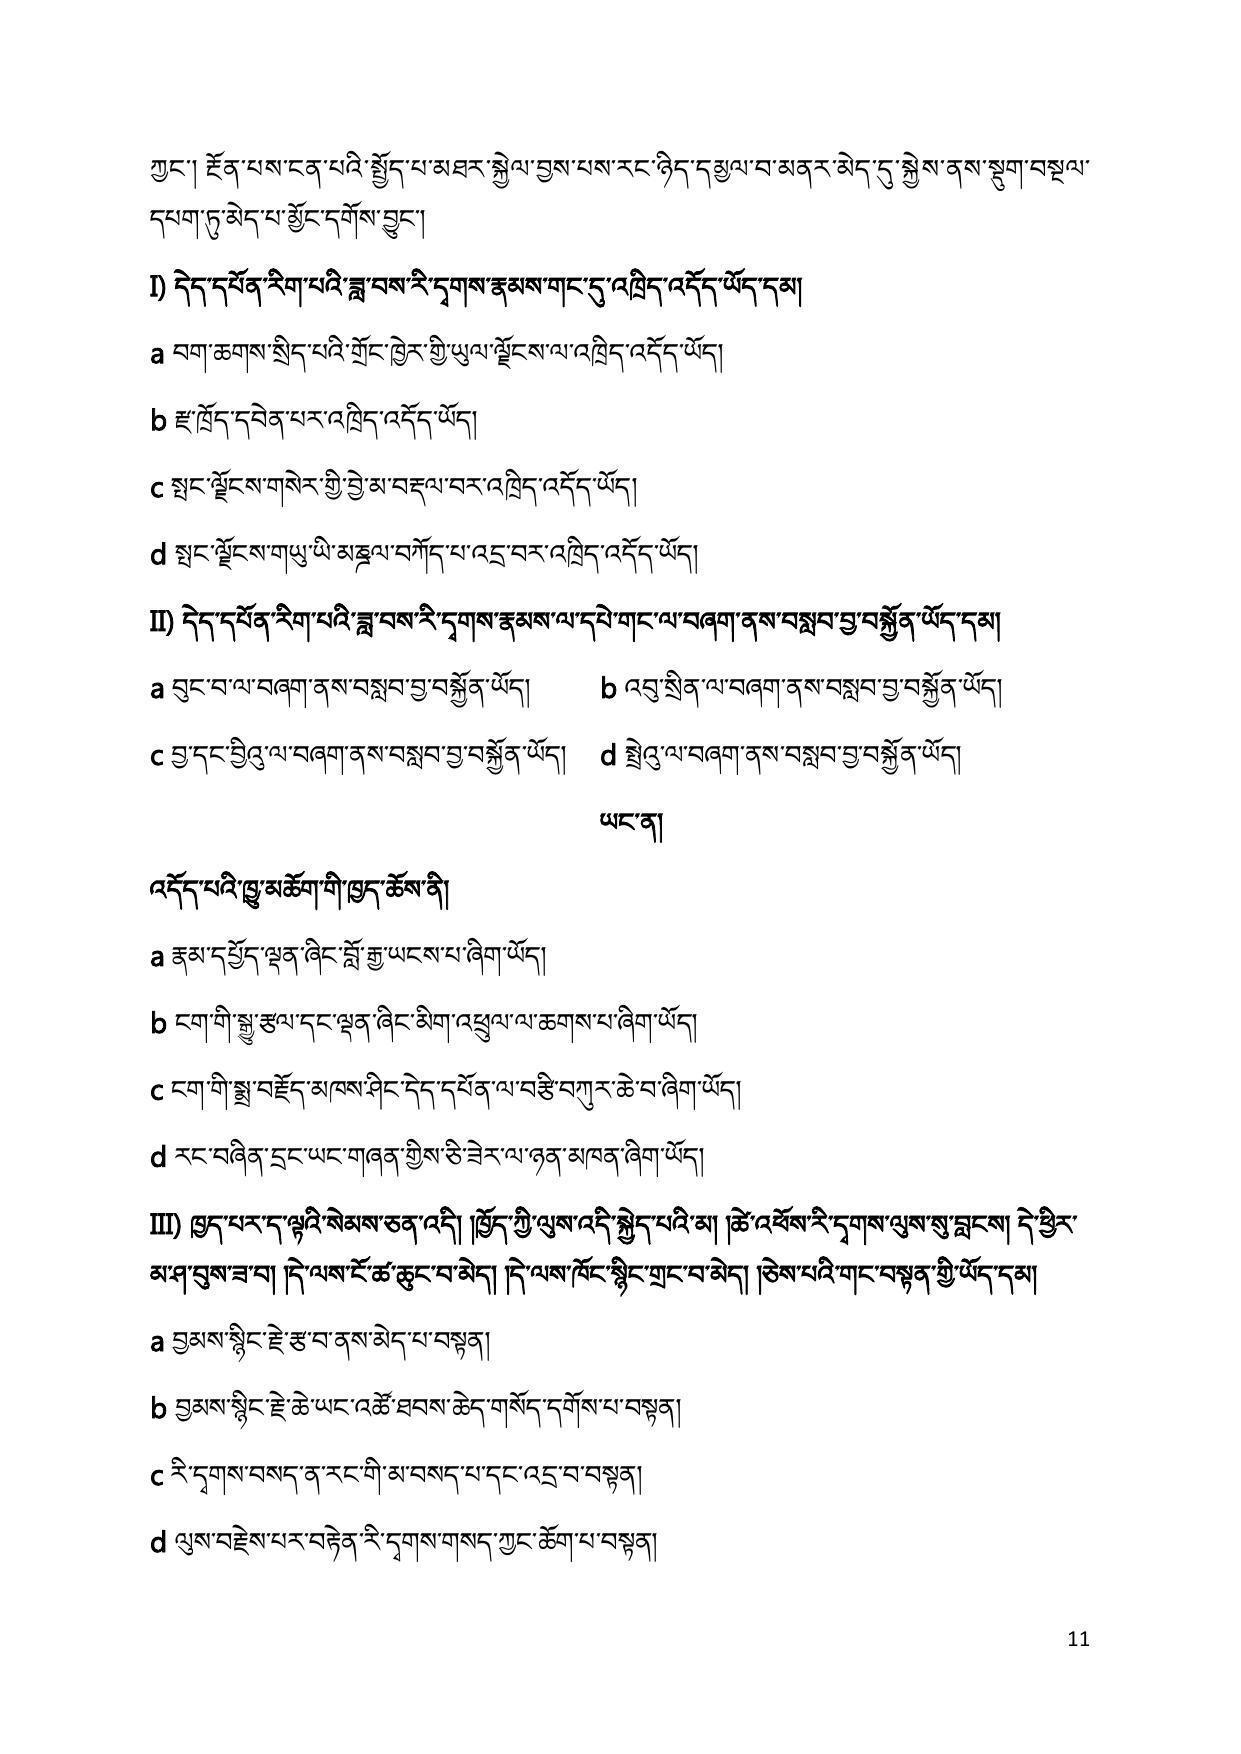 ཀྱང༌། རྔོན་པས་ངན་པའི་སྤྱོད་པ་མཐར་སྐྱེལ་བྱས་པས་རང་ཉིད་དམྱལ་བ་མནར་མེད་དུ་སྐྱེས་ནས་སྡུག་བསྔལ་
དཔག་ཏུ་མེད་པ་མྱོང་དགོས་བྱུང༌།
I) དེད་དཔོན་རིག་པའི་ཟླ་བས་རི་དྭགས་རྣམས་གང་དུ་འཁྲིད་འདོད་ཡོད་དམ།
a བག་ཆགས་སྲིད་པའི་གྲོང་ཁྱེར་གྱི་ཡུལ་ལྗོངས་ལ་འཁྲིད་འདོད་ཡོད།
b རྫ་ཁྲོད་དབེན་པར་འཁྲིད་འདོད་ཡོད།
c སྤང་ལྗོངས་གསེར་གྱི་བྱེ་མ་བརྡལ་བར་འཁྲིད་འདོད་ཡོད།
d སྤང་ལྗོངས་གཡུ་ཡི་མཎྜལ་བཀོད་པ་འདྲ་བར་འཁྲིད་འདོད་ཡོད།
II) དེད་དཔོན་རིག་པའི་ཟླ་བས་རི་དྭགས་རྣམས་ལ་དཔེ་གང་ལ་བཞག་ནས་བསླབ་བྱ་བསྐྱོན་ཡོད་དམ།
a བུང་བ་ལ་བཞག་ནས་བསླབ་བྱ་བསྐྱོན་ཡོད། b འབུ་སྲིན་ལ་བཞག་ནས་བསླབ་བྱ་བསྐྱོན་ཡོད།
c བྱ་དང་བྱིའུ་ལ་བཞག་ནས་བསླབ་བྱ་བསྐྱོན་ཡོད། d སྤྲེའུ་ལ་བཞག་ནས་བསླབ་བྱ་བསྐྱོན་ཡོད།
ཡང་ན།
འདོད་པའི་ཁྱུ་མཆོག་གི་ཁྱད་ཆོས་ནི།
a རྣམ་དཔྱོད་ལྡན་ཞིང་བློ་རྒྱ་ཡངས་པ་ཞིག་ཡོད།
b ངག་གི་སྒྱུ་རྩལ་དང་ལྡན་ཞིང་མིག་འཕྲུལ་ལ་ཆགས་པ་ཞིག་ཡོད།
c ངག་གི་སྨྲ་བརྗོད་མཁས་ཤིང་དེད་དཔོན་ལ་བརྩི་བཀུར་ཆེ་བ་ཞིག་ཡོད།
d རང་བཞིན་དྲང་ཡང་གཞན་གྱིས་ཅི་ཟེར་ལ་ཉན་མཁན་ཞིག་ཡོད།
III) ཁྱད་པར་ད་ལྟའི་སེམས་ཅན་འདི། །ཁྱོད་ཀྱི་ལུས་འདི་སྐྱེད་པའི་མ། །ཚེ་འཕོས་རི་དྭགས་ལུས་སུ་བླངས། དེ་ཕྱིར་
མ་ཤ་བུས་ཟ་བ། །དེ་ལས་ངོ་ཚ་ཆུང་བ་མེད། །དེ་ལས་ཁོང་སྙིང་གྲང་བ་མེད། །ཅེས་པའི་གང་བསྟན་གྱི་ཡོད་དམ།
a བྱམས་སྙིང་རྗེ་རྩ་བ་ནས་མེད་པ་བསྟན།
b བྱམས་སྙིང་རྗེ་ཆེ་ཡང་འཚོ་ཐབས་ཆེད་གསོད་དགོས་པ་བསྟན།
c རི་དྭགས་བསད་ན་རང་གི་མ་བསད་པ་དང་འདྲ་བ་བསྟན།
d ལུས་བརྗེས་པར་བརྟེན་རི་དྭགས་གསད་ཀྱང་ཆོག་པ་བསྟན།
11